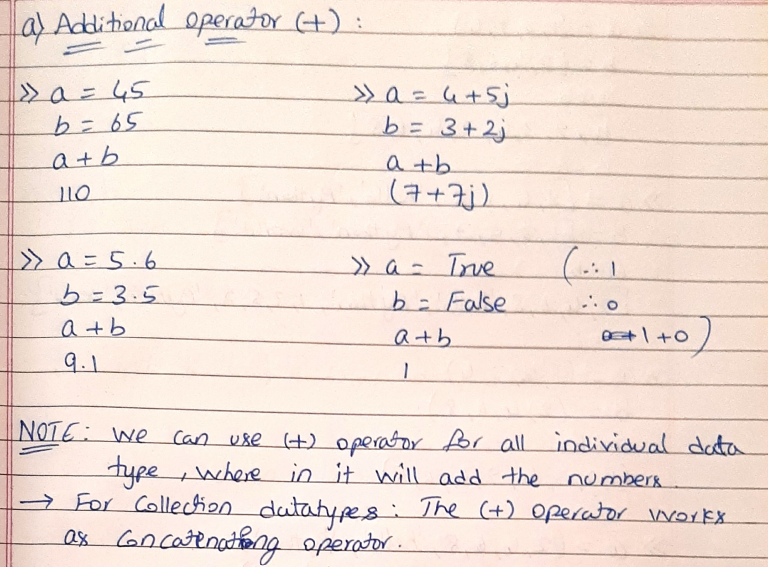 a) Additional operator (+) :
>> a = 45
b = 65
a + b
110
>> a = 4+5j
b = 3+2j
a + b
(7+7j)
>> a = 5.6
b = 3.5
a + b
9.1
>> a = True (∴ 1
b = False ∴ 0
a + b 1+0)
1
NOTE: we can use (+) operator for all individual data
type, where in it will add the numbers.
→ For Collection datatypes: The (+) operator works
as Concatenating operator.